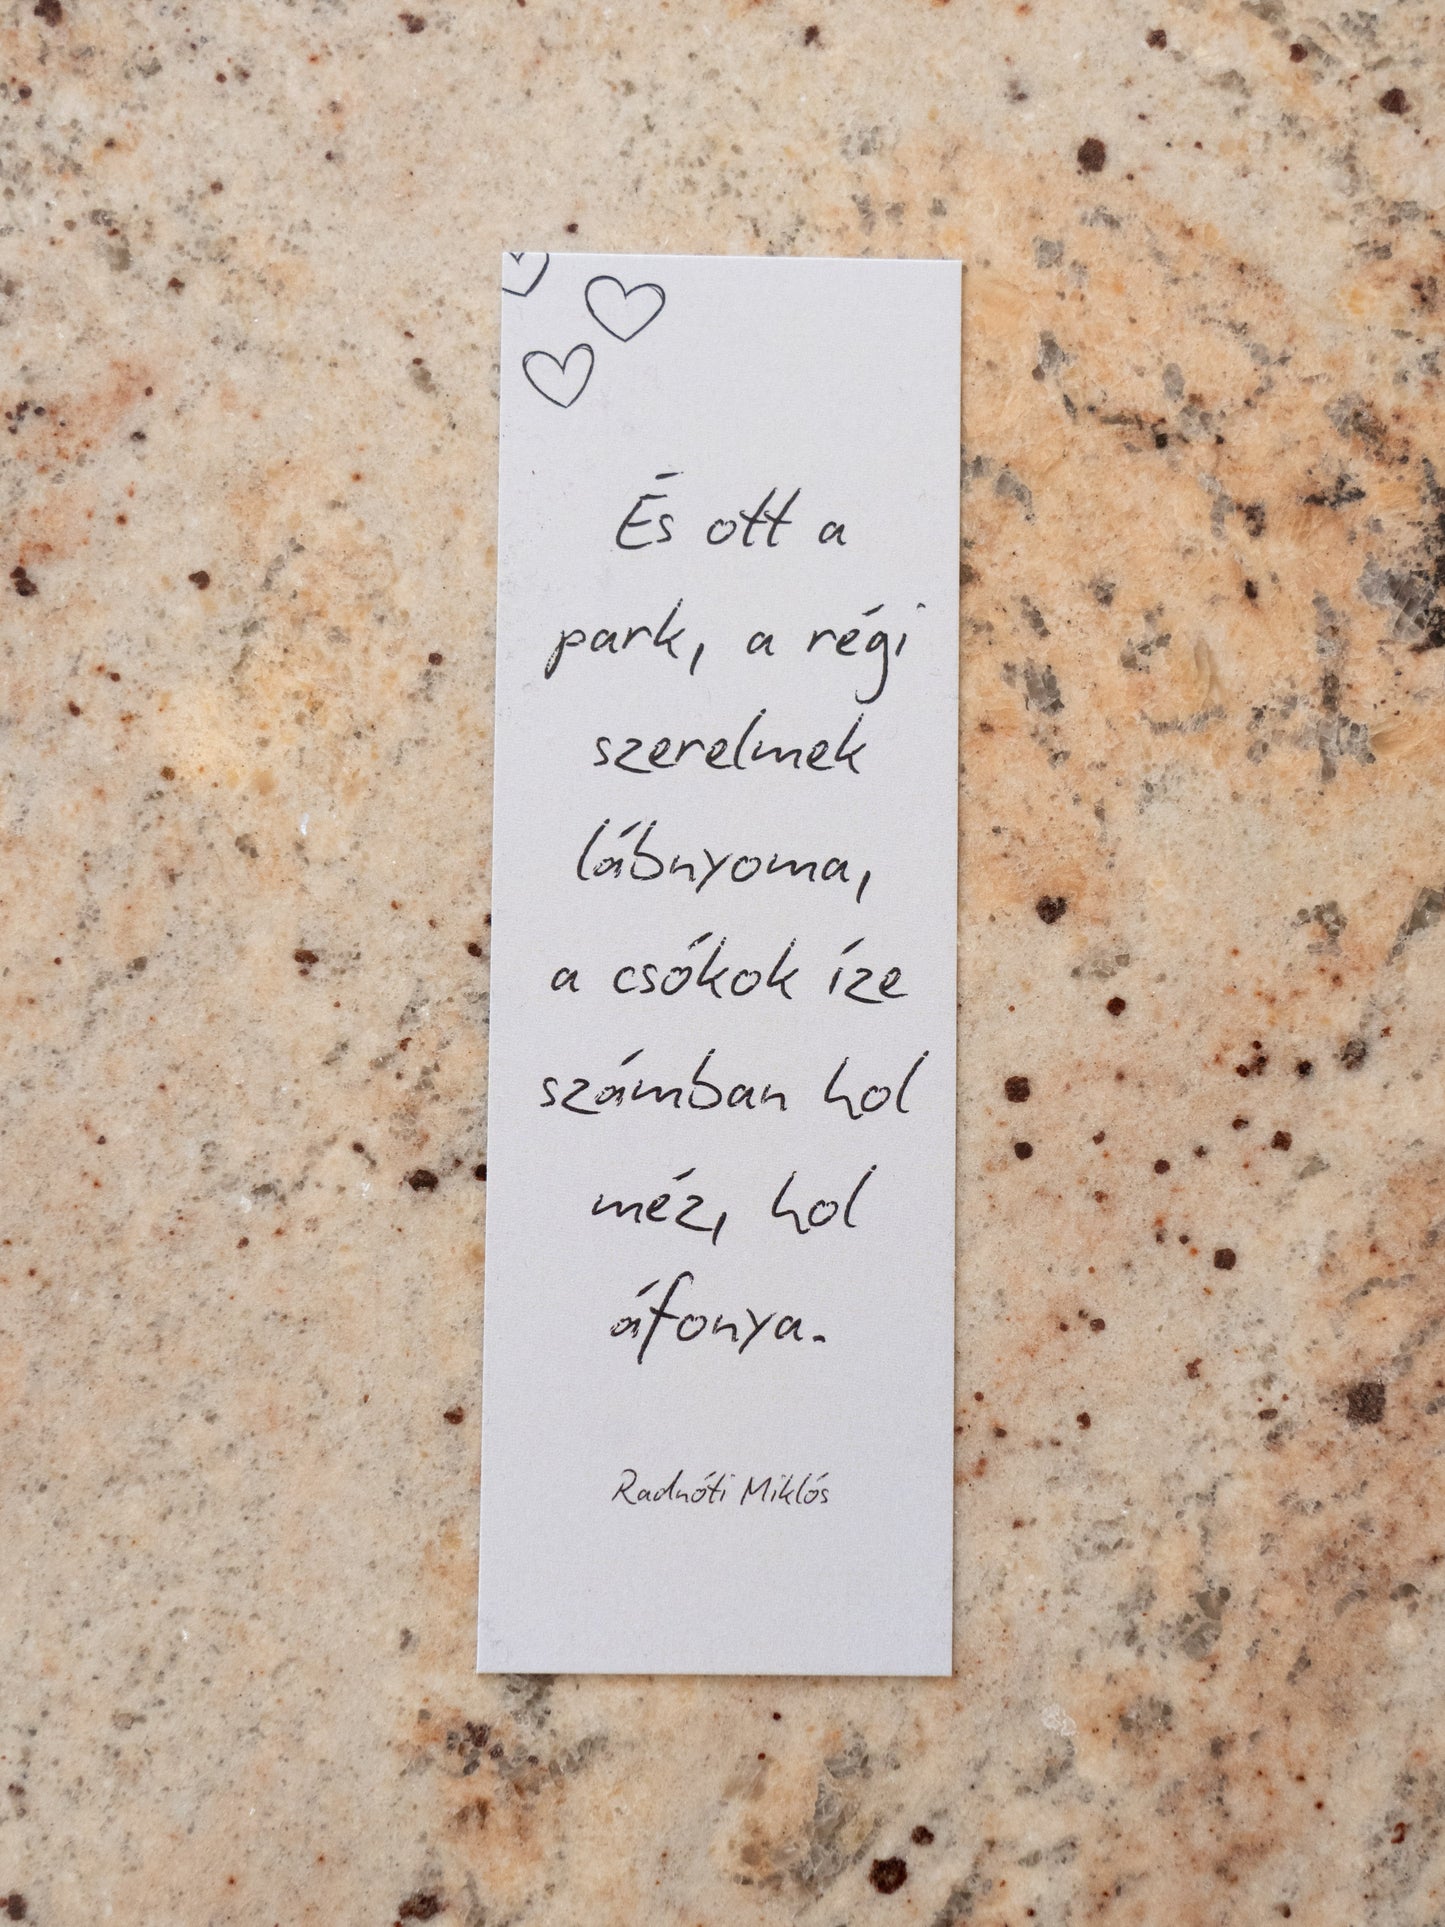 És ott a
park, a régi
szerelmek
lábnyoma,
a csókok íze
számban hol
méz, hol
áfonya.
Radnóti Miklós